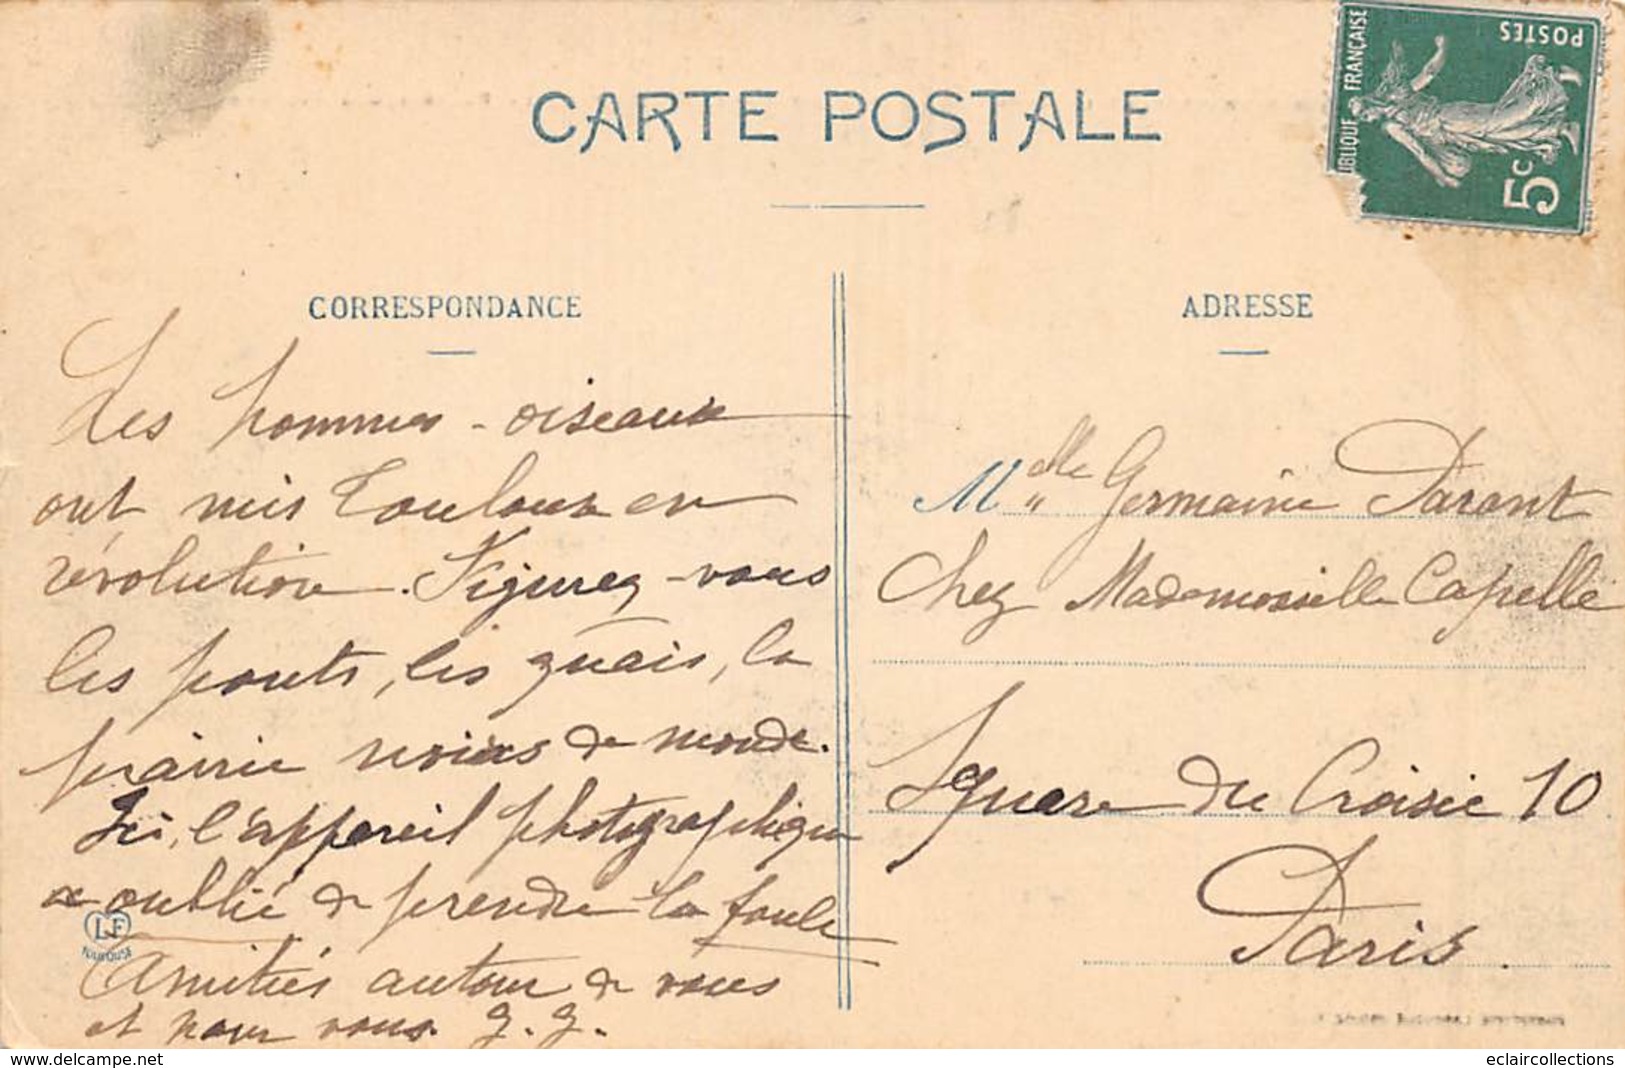 CARTE POSTALE
RÉPUBLIQUE FRANÇAISE
POSTES
5c
CORRESPONDANCE
Les hommes-oiseaux
ont mis Toulouse en
révolution. Figurez-vous
les ponts, les quais, la
prairie noirs de monde.
Ici, l'appareil photographique
a oublié de prendre la foule
Amitiés autour de vous
et pour vous. G. G.
LF
TOULOUSE
ADRESSE
Mdlle Germaine Parant
Chez Mademoiselle Capelle
Square du Croisic 10
Paris.
eclaircollections